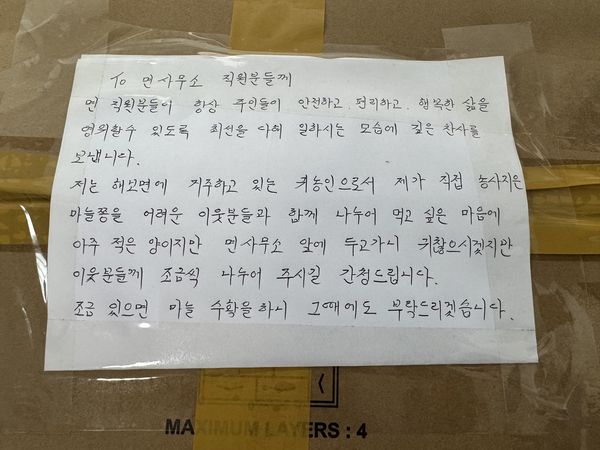 To 면사무소 직원분들께
면 직원분들이 항상 주민들이 안전하고. 편리하고. 행복한 삶을
영위할수 있도록 최선을 다해 일하시는 모습에 깊은 찬사를
보냅니다.
저는 해보면에 거주하고 있는 귀농인으로서 제가 직접 농사지은
마늘쫑을 어려운 이웃분들과 함께 나누어 먹고 싶은 마음에
아주 적은 양이지만 면사무소 앞에 두고가니 귀찮으시겠지만
이웃분들께 조금씩 나누어 주시길 간청드립니다.
조금 있으면 마늘 수확을 하니 그때에도 부탁드리겠습니다.
MAXIMUM LAYERS : 4